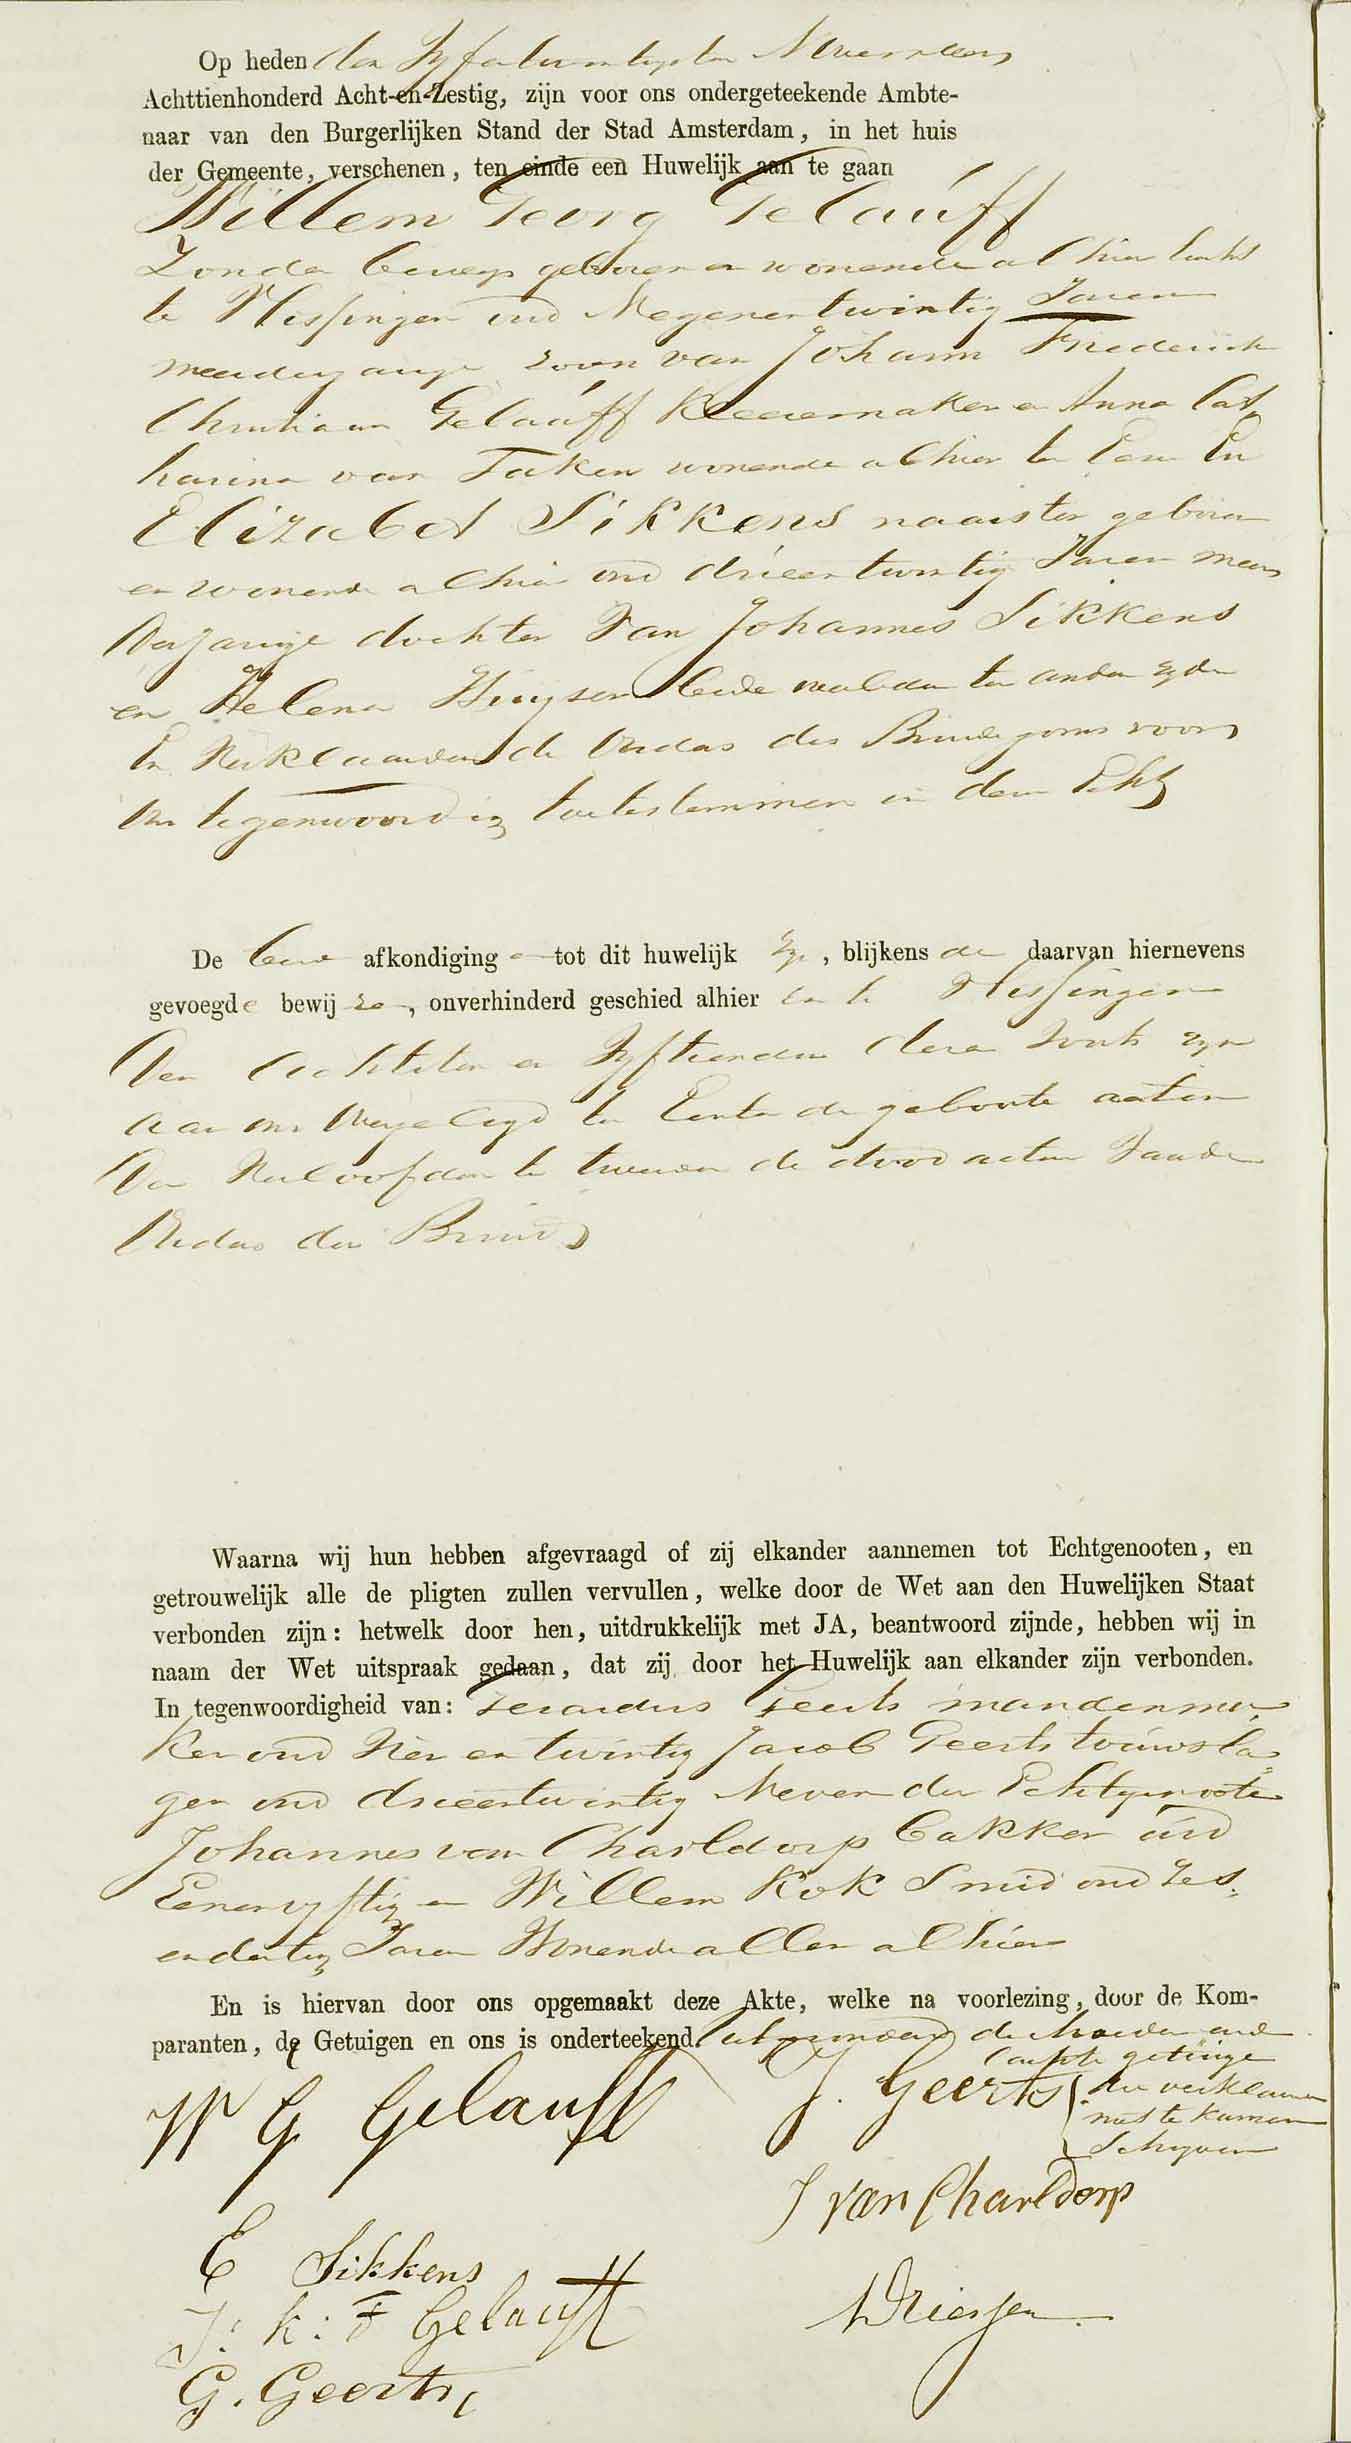 Op heden den Vyfentwintigsten November
Achttienhonderd Acht-en-Zestig, zijn voor ons ondergeteekende Ambte-
naar van den Burgerlijken Stand der Stad Amsterdam, in het huis
der Gemeente, verschenen, ten einde een Huwelijk aan te gaan
Willem Georg Gelauff
Zonder beroep geboren en wonende alhier laatst
te Vlissingen oud Negenentwintig Jaren
meerderjarige zoon van Johann Frederick
Christiaan Gelauff Kleermaker en Anna Cat,
harina van Taken wonende alhier ter Eene En
Elizabet Sikkens naaister geboren
en wonende alhier oud drieentwintig Jaren meer
derjarige dochter van Johannes Sikkens
en Helena Huijser beide overleden ter andere zyde
En verklaarden de Vader des Bruidegoms voor
ons tegenwoordig toetestemmen in dem Echt
De beide afkondiging en tot dit huwelijk zyn, blijkens de daarvan hiernevens
gevoegde bewijzen, onverhinderd geschied alhier en te Vlissingen
Den Achtsten en Vyftienden dezer voorts zyn
aan ons overgelegd ten Eerste de geboorte acten
der Verloofden ten tweeden de dood acten van de
Ouders der Bruid
Waarna wij hun hebben afgevraagd of zij elkander aannemen tot Echtgenooten, en
getrouwelijk alle de pligten zullen vervullen, welke door de Wet aan den Huwelijken Staat
verbonden zijn: hetwelk door hen, uitdrukkelijk met JA, beantwoord zijnde, hebben wij in
naam der Wet uitspraak gedaan, dat zij door het Huwelijk aan elkander zijn verbonden.
In tegenwoordigheid van: Gerardus Geerts mandenma
ker oud Vier en twintig Jacob Geerts touwsla
ger oud drieentwintig Neven der Echtgenoote
Johannes van Charldorp bakker oud
Eenenvyftig en Willem Kok Smid oud Zes
endertig Jaren Wonende allen alhier
En is hiervan door ons opgemaakt deze Akte, welke na voorlezing, door de Kom-
paranten, de Getuigen en ons is onderteekend. uitgenomen de Moeder en de
laatste getuige
die verklaren
niet te kunnen
Schryven
W G Gelauff
J. Geerts
J van Charldorp
E Sikkens
J: K: F Gelauff
Driessen
G. Geerts